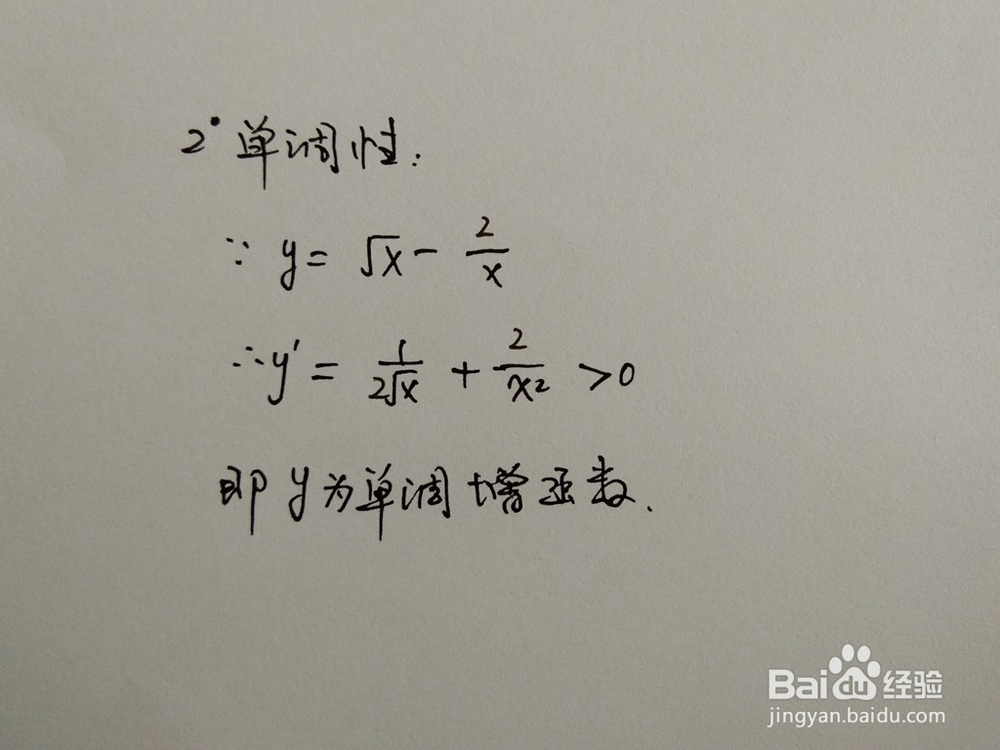 2° 单调性:
∵ y = √x - 2/x
∴ y' = 1/(2√x) + 2/x² >0
即 y 为单调增函数.
Baidu 经验
jingyan.baidu.com